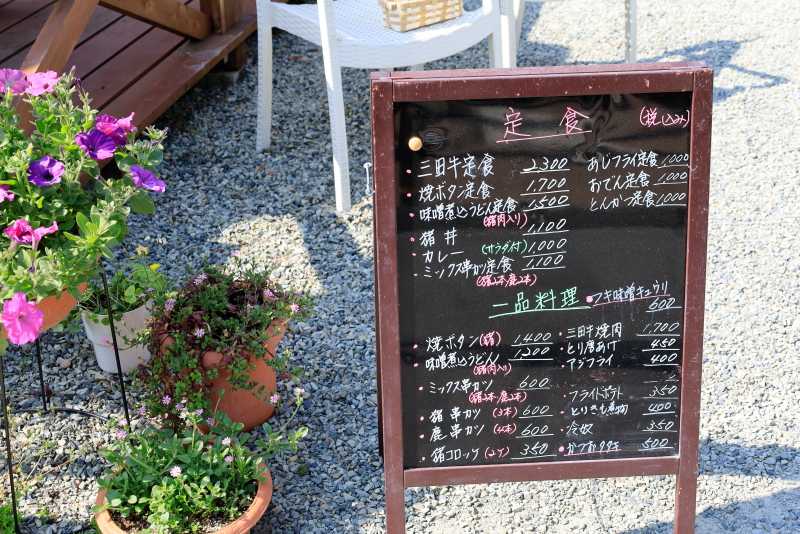 定食 (税込み)
・三田牛定食 2,300
・焼ボタン定食 1,700
・味噌煮込うどん定食 1,500
(猪肉入り)
・猪丼 1,100
・カレー (サラダ付) 1,000
・ミックス串カツ定食 1,100
(猪2本・鹿2本)
あじフライ定食 1,000
おでん定食 1,000
とんかつ定食 1,000
一品料理
・焼ボタン(猪) 1,400
・味噌煮込うどん 1,200
(猪肉入り)
・ミックス串カツ 600
(猪2本・鹿2本)
・猪串カツ (3本) 600
・鹿串カツ (4本) 600
・猪コロッケ (2ケ) 350
・フキ味噌キュウリ 600
・三田牛焼肉 1,700
・とり唐あげ 450
・アジフライ 400
・フライドポテト 350
・とりきも煮物 400
・冷奴 350
・かつおタタキ 500